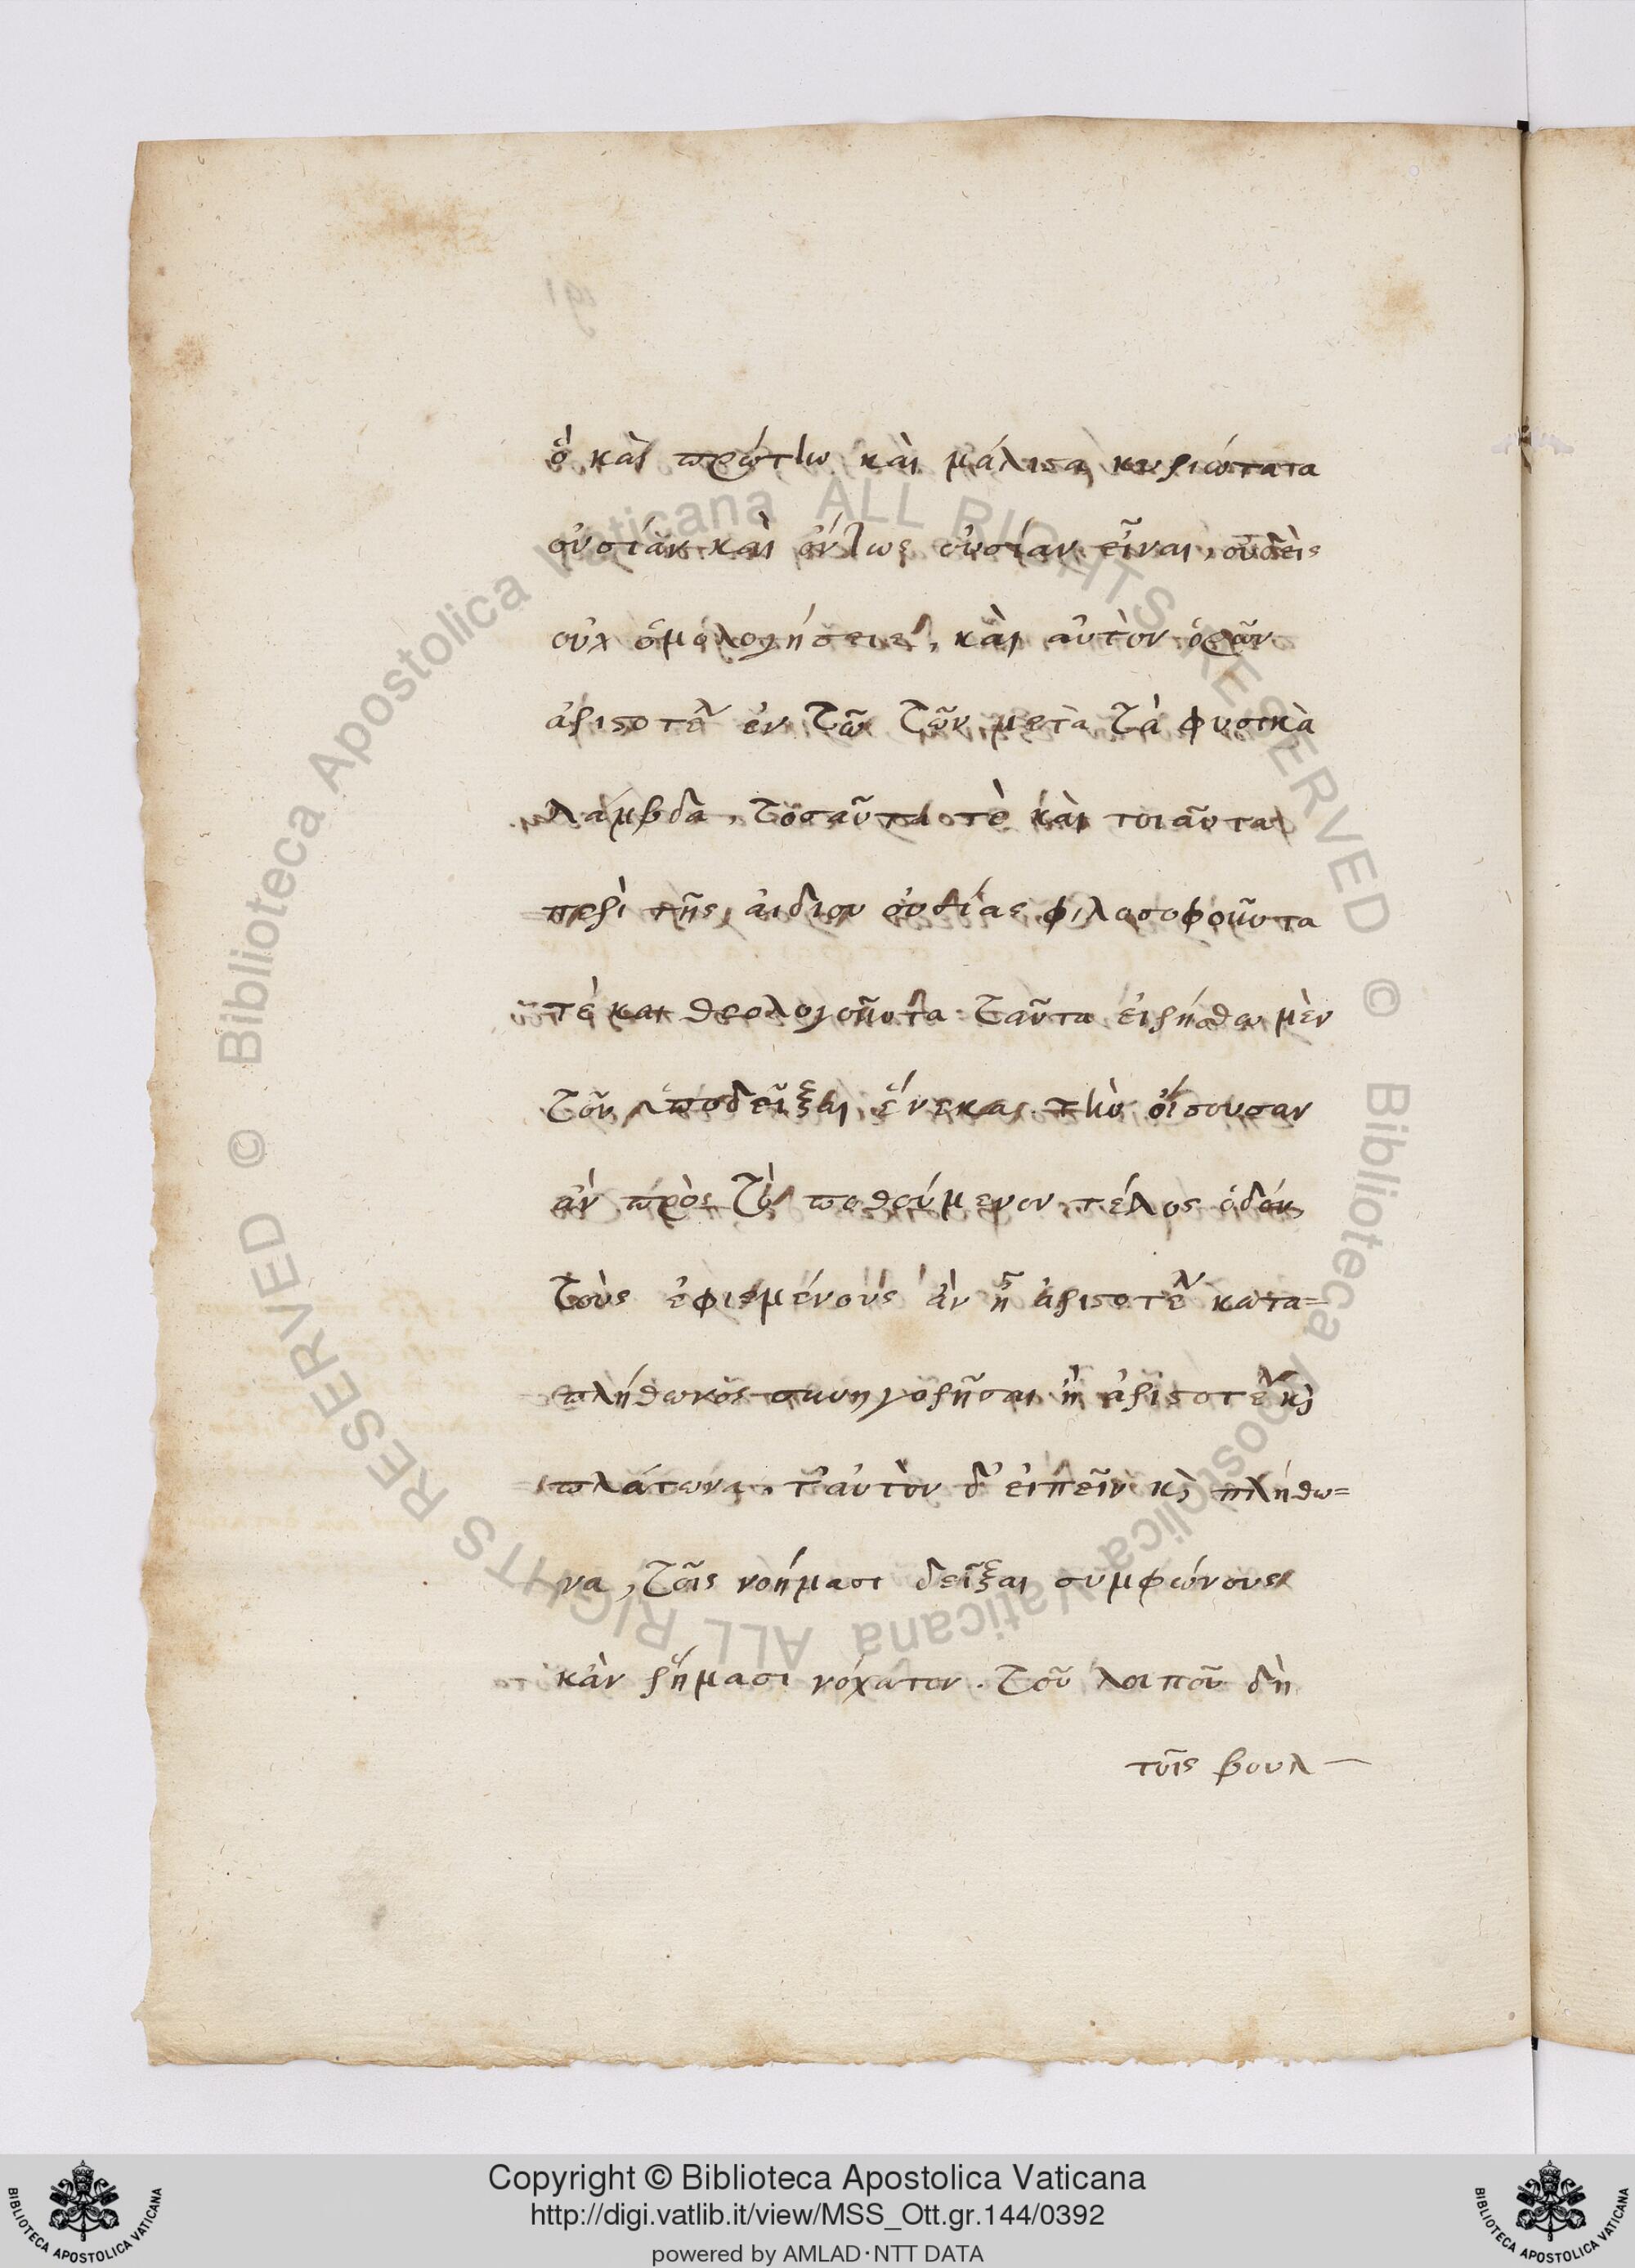 ὃ καὶ πρώτην καὶ μάλιστα κυριώτατα
οὐσίαν καὶ ὄντως οὐσίαν εἶναι, οὐδεὶς
οὐχ ὁμολογήσειε, καὶ αὐτὸν ὁρῶν
ἀριστοτέλη ἐν τῶ τῶν μετὰ τὰ φυσικὰ
λάμβδα, τοσαῦτα τὲ καὶ τοιαῦτα
περὶ τῆς ἀιδίου οὐσίας φιλοσοφοῦντα
τὲ και θεολογοῦντα· ταῦτα εἰρήσθω μὲν
τοῦ ὑποδεῖξαι ἕνεκα τὴν οἴσουσαν
ἂν πρὸς τὸ ποθούμενον τέλος ὁδόν,
τοὺς ἐφιεμένους ἂν ἢ ἀριστοτέλ κατα=
πλήθωνος συνηγορῆσαι ἢ ἀριστοτέλ κὶ
πλάτωνα, ταὐτὸν δ' εἰπεῖν κὶ πλήθω=
να, τοῖς νοήμασι δεῖξαι συμφώνους
κἂν ῥήμασι . τοῦ λοιποῦ δὴ
τοῖς βουλ
© Biblioteca Apostolica Vaticana ALL RIGHTS RESERVED © Biblioteca Apostolica Vaticana ALL RIGHTS RESERVED
Copyright © Biblioteca Apostolica Vaticana
http://digi.vatlib.it/view/MSS_Ott.gr.144/0392
powered by AMLAD·NTT DATA
BIBLIOTECA APOSTOLICA VATICANA
BIBLIOTECA APOSTOLICA VATICANA